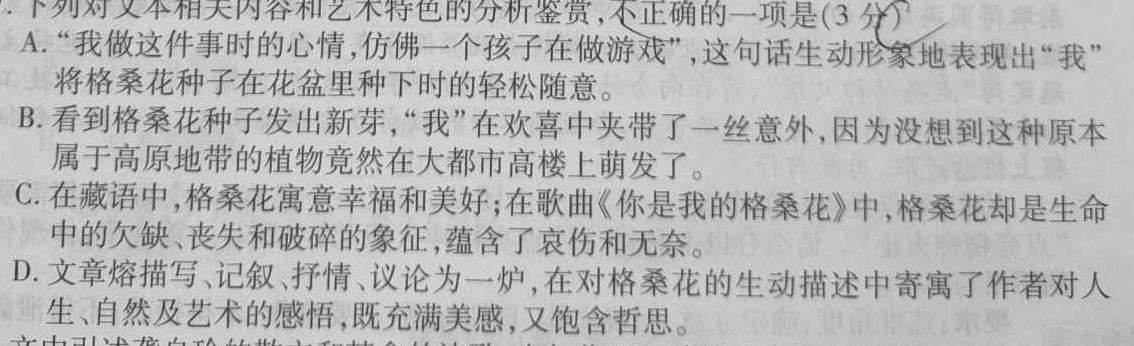 . 下列对文本相关内容和艺术特色的分析鉴赏,不正确的一项是(3分)
A. “我做这件事时的心情,仿佛一个孩子在做游戏”,这句话生动形象地表现出“我”
将格桑花种子在花盆里种下时的轻松随意。
B. 看到格桑花种子发出新芽,“我”在欢喜中夹带了一丝意外,因为没想到这种原本
属于高原地带的植物竟然在大都市高楼上萌发了。
C. 在藏语中,格桑花寓意幸福和美好;在歌曲《你是我的格桑花》中,格桑花却是生命
中的欠缺、丧失和破碎的象征,蕴含了哀伤和无奈。
D. 文章熔描写、记叙、抒情、议论为一炉,在对格桑花的生动描述中寄寓了作者对人
生、自然及艺术的感悟,既充满美感,又饱含哲思。